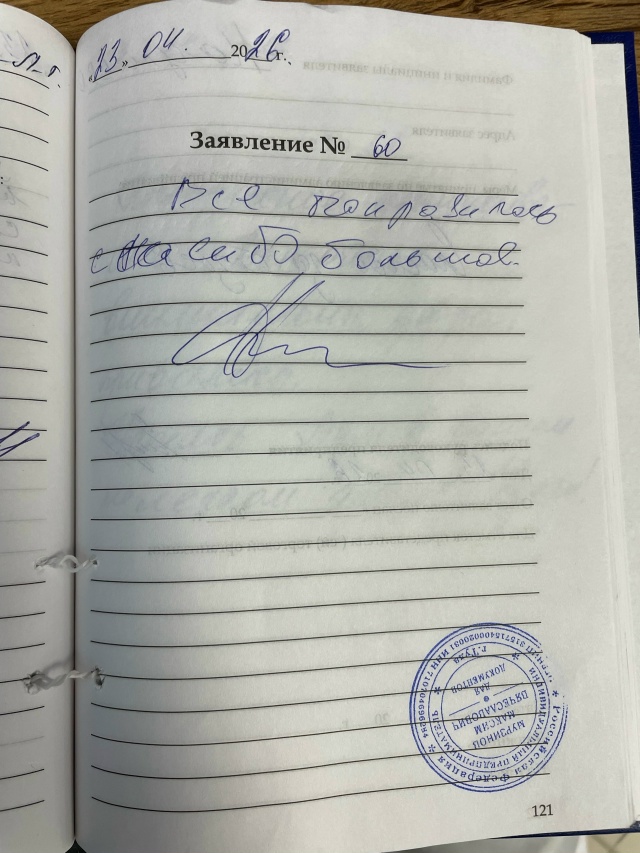 «23» 04. 2026 г.
Заявление № 60
Всё понравилось
спасибо большое.
Российская Федерация
ИНДИВИДУАЛЬНЫЙ ПРЕДПРИНИМАТЕЛЬ
г. Тула
МУРЗИНОВ
МАКСИМ
ВЯЧЕСЛАВОВИЧ
ДЛЯ
ДОКУМЕНТОВ
121